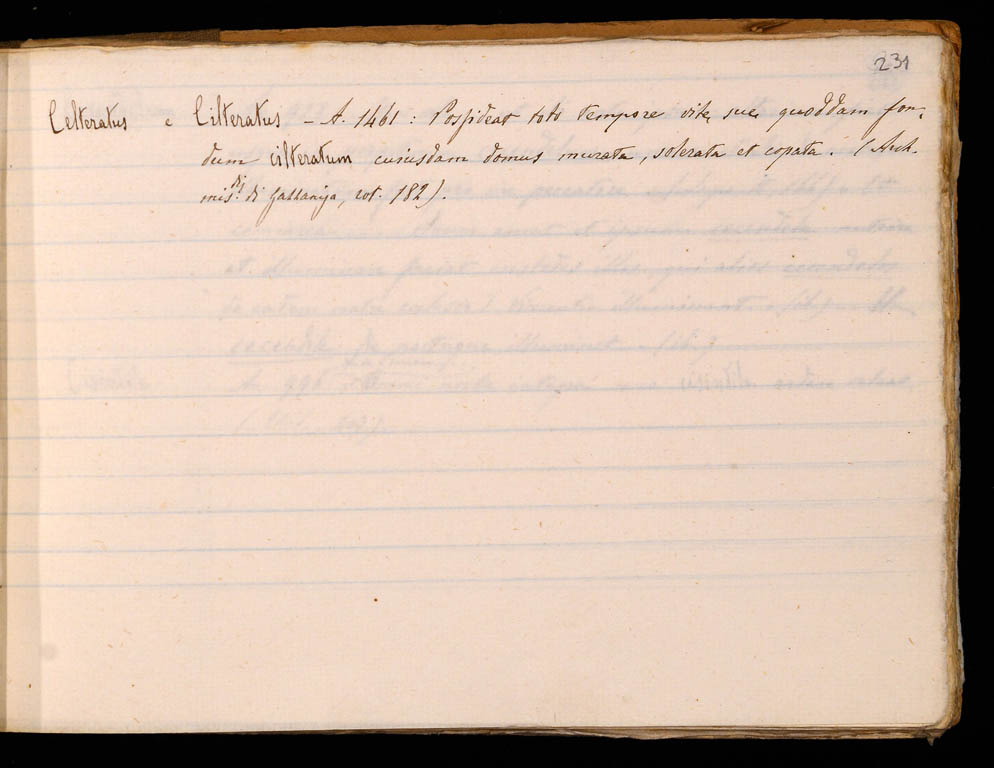 231
Celteratus e Cilteratus – A. 1461: Possideat toto tempore vite sue quoddam fon-
dum cilteratum cuiusdam domus murata, solerata et copata. (Arch.
mis. di di Galzanija, rot. 182).